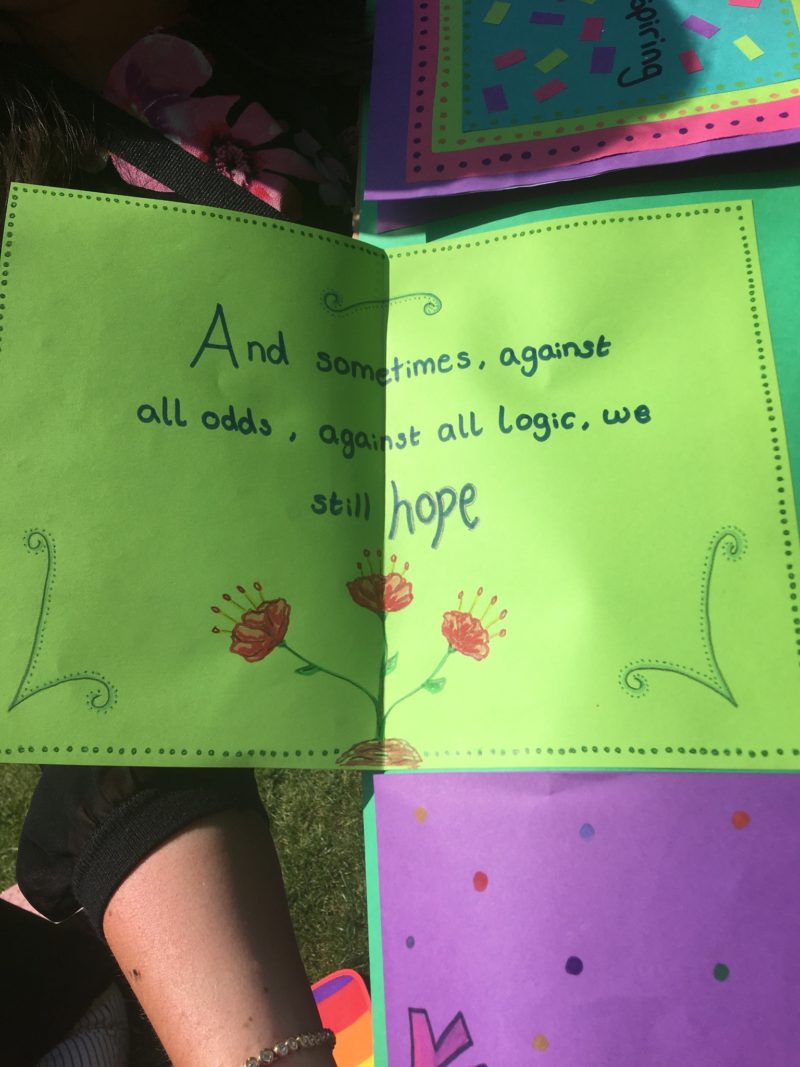 piring
And sometimes, against
all odds, against all logic, we
still hope